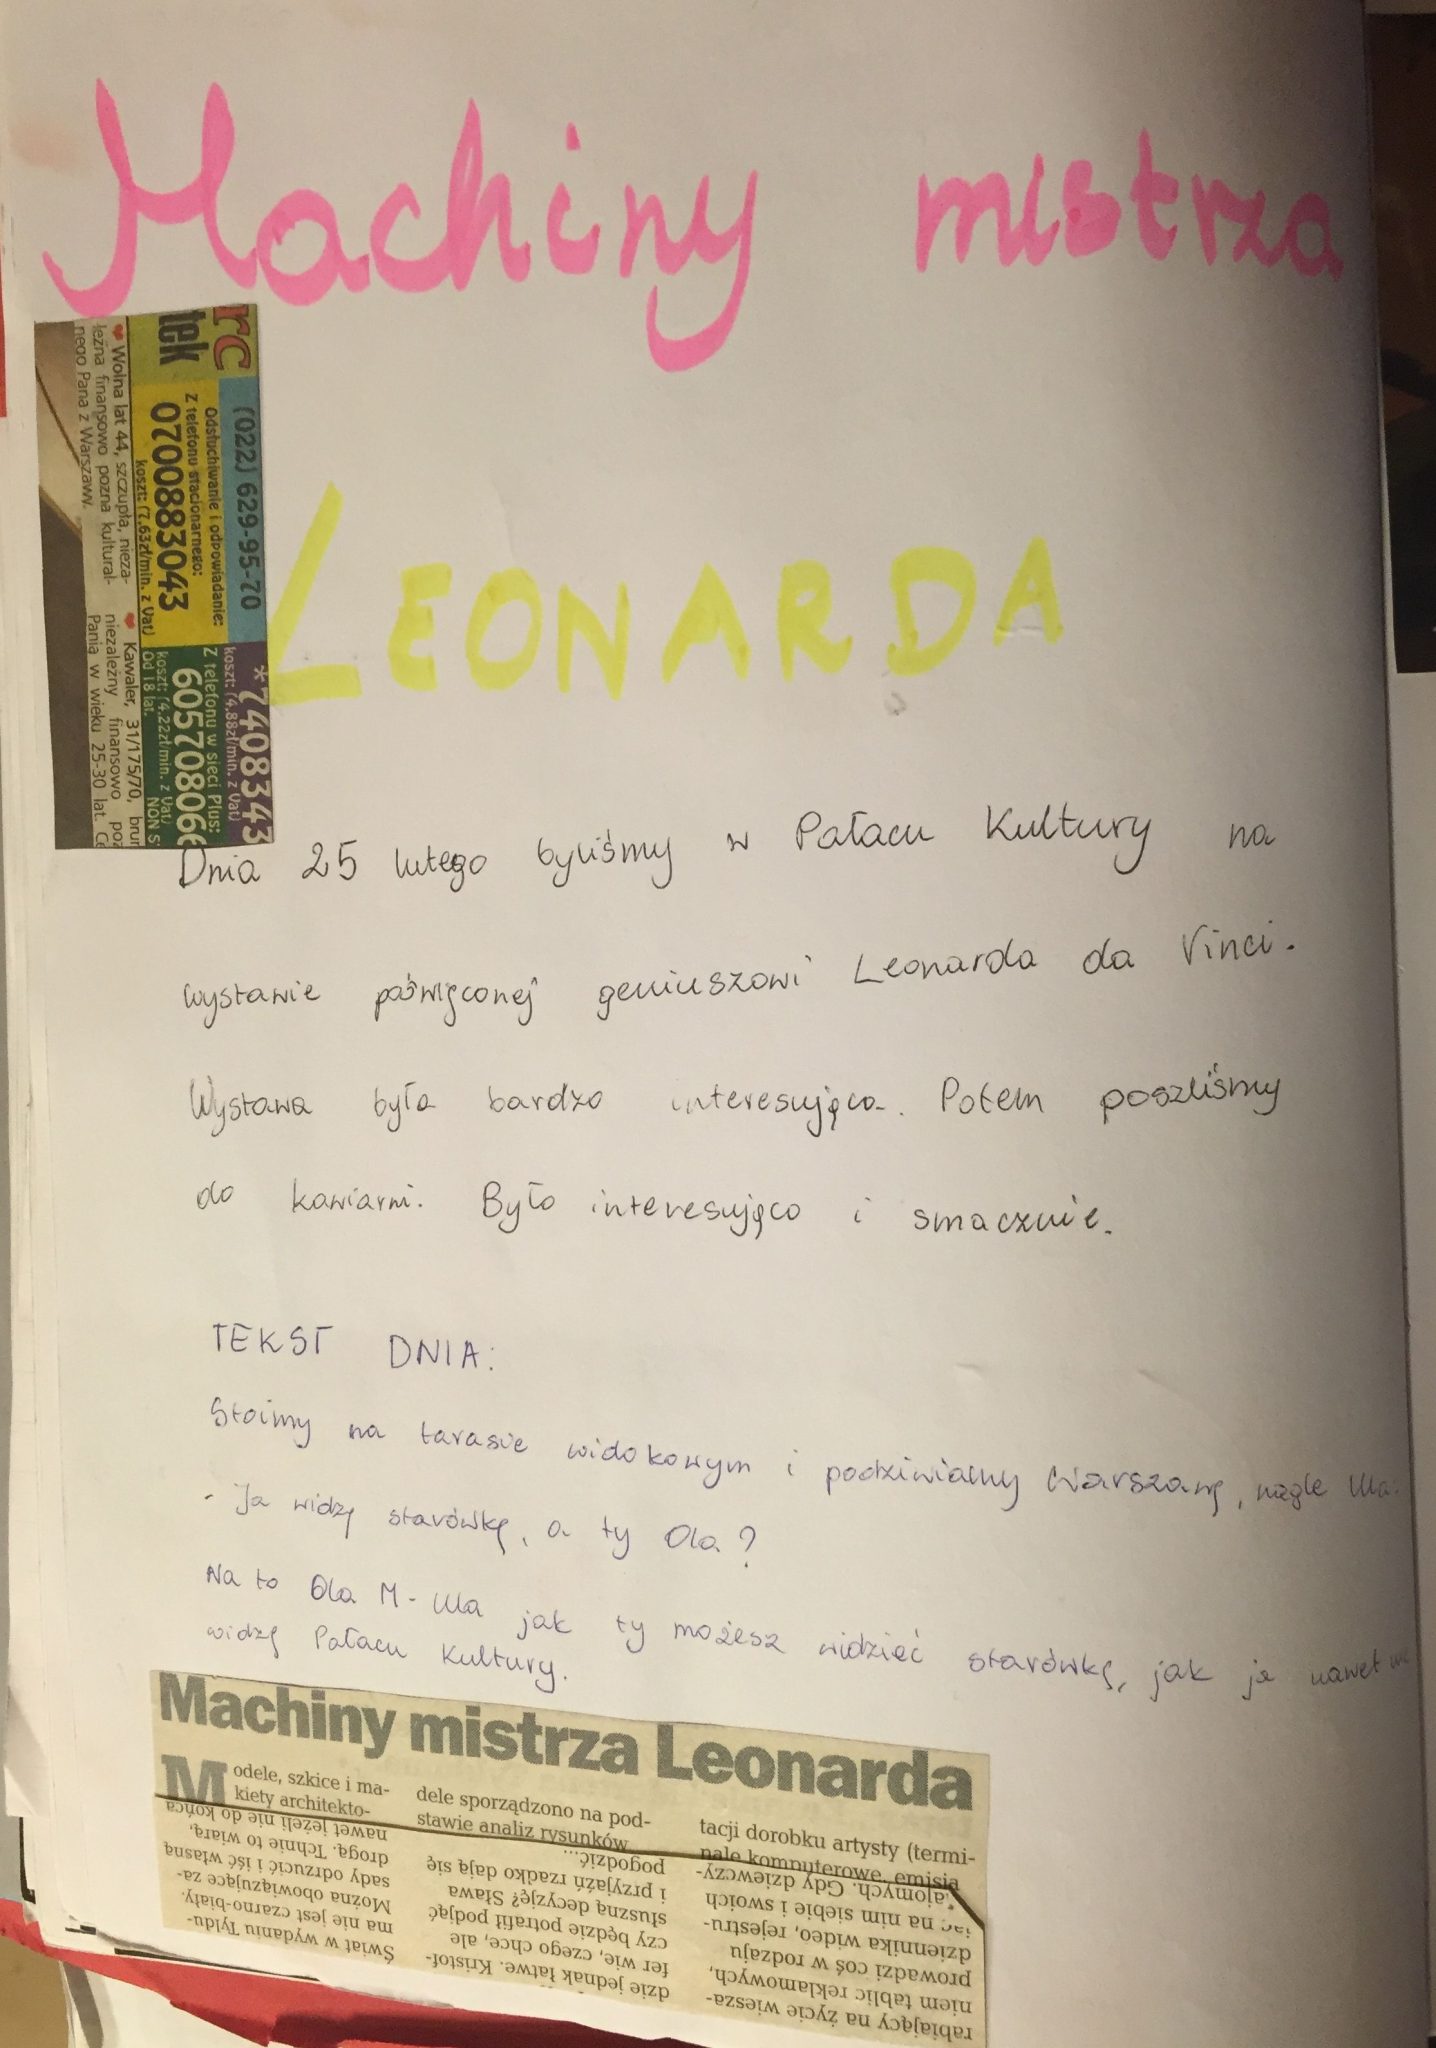 Machiny mistrza
LEONARDA
rc
tek
(022) 629-95-70
Odsłuchiwanie i odpowiadanie:
Z telefonu stacjonarnego:
0700883043
koszt: (7,63zł/min. z Vat)
*7408343
koszt: (4,88zł/min. z Vat)
Z telefonu w sieci Plus:
60570806
koszt: (4,22zł/min. z Vat)
Od 18 lat. NON S
Wolna lat 44, szczupła, nieza-
leżna finansowo pozna kultural-
nego Pana z Warszawy.
Kawaler, 31/175/70, brun
niezależny finansowo poz
Panią w wieku 25-30 lat. C
Dnia 25 lutego byliśmy w Pałacu Kultury na
wystawie poświęconej geniuszowi Leonarda da Vinci.
Wystawa była bardzo interesująca. Potem poszliśmy
do kawiarni. Było interesująco i smacznie.
TEKST DNIA:
Stoimy na tarasie widokowym i podziwiamy Warszawę, nagle Ula:
- Ja widzę starówkę, a ty Ola?
Na to Ola M - Ula jak ty możesz widzieć starówkę, jak ja nawet nie
widzę Pałacu Kultury.
Machiny mistrza Leonarda
Modele, szkice i ma-
kiety architekto-
dele sporządzono na pod-
stawie analiz rysunków
tacji dorobku artysty (termi-
nale komputerowe, emisja
Świat w wydaniu Tyldu-
ma nie jest czarno-biały.
Można obowiązujące za-
sady odrzucić i iść własną
drogą. Tchnie to wiarą,
nawet jeżeli nie do końca
dzie jednak łatwe. Kristof-
fer wie, czego chce, ale
czy będzie potrafił podjąć
słuszną decyzję? Sława
i przyjaźń rzadko dają się
pogodzić...
rabiający na życie wiesza-
niem tablic reklamowych,
prowadzi coś w rodzaju
dziennika wideo, rejestru-
jąc na nim siebie i swoich
znajomych. Gdy dziewczy-